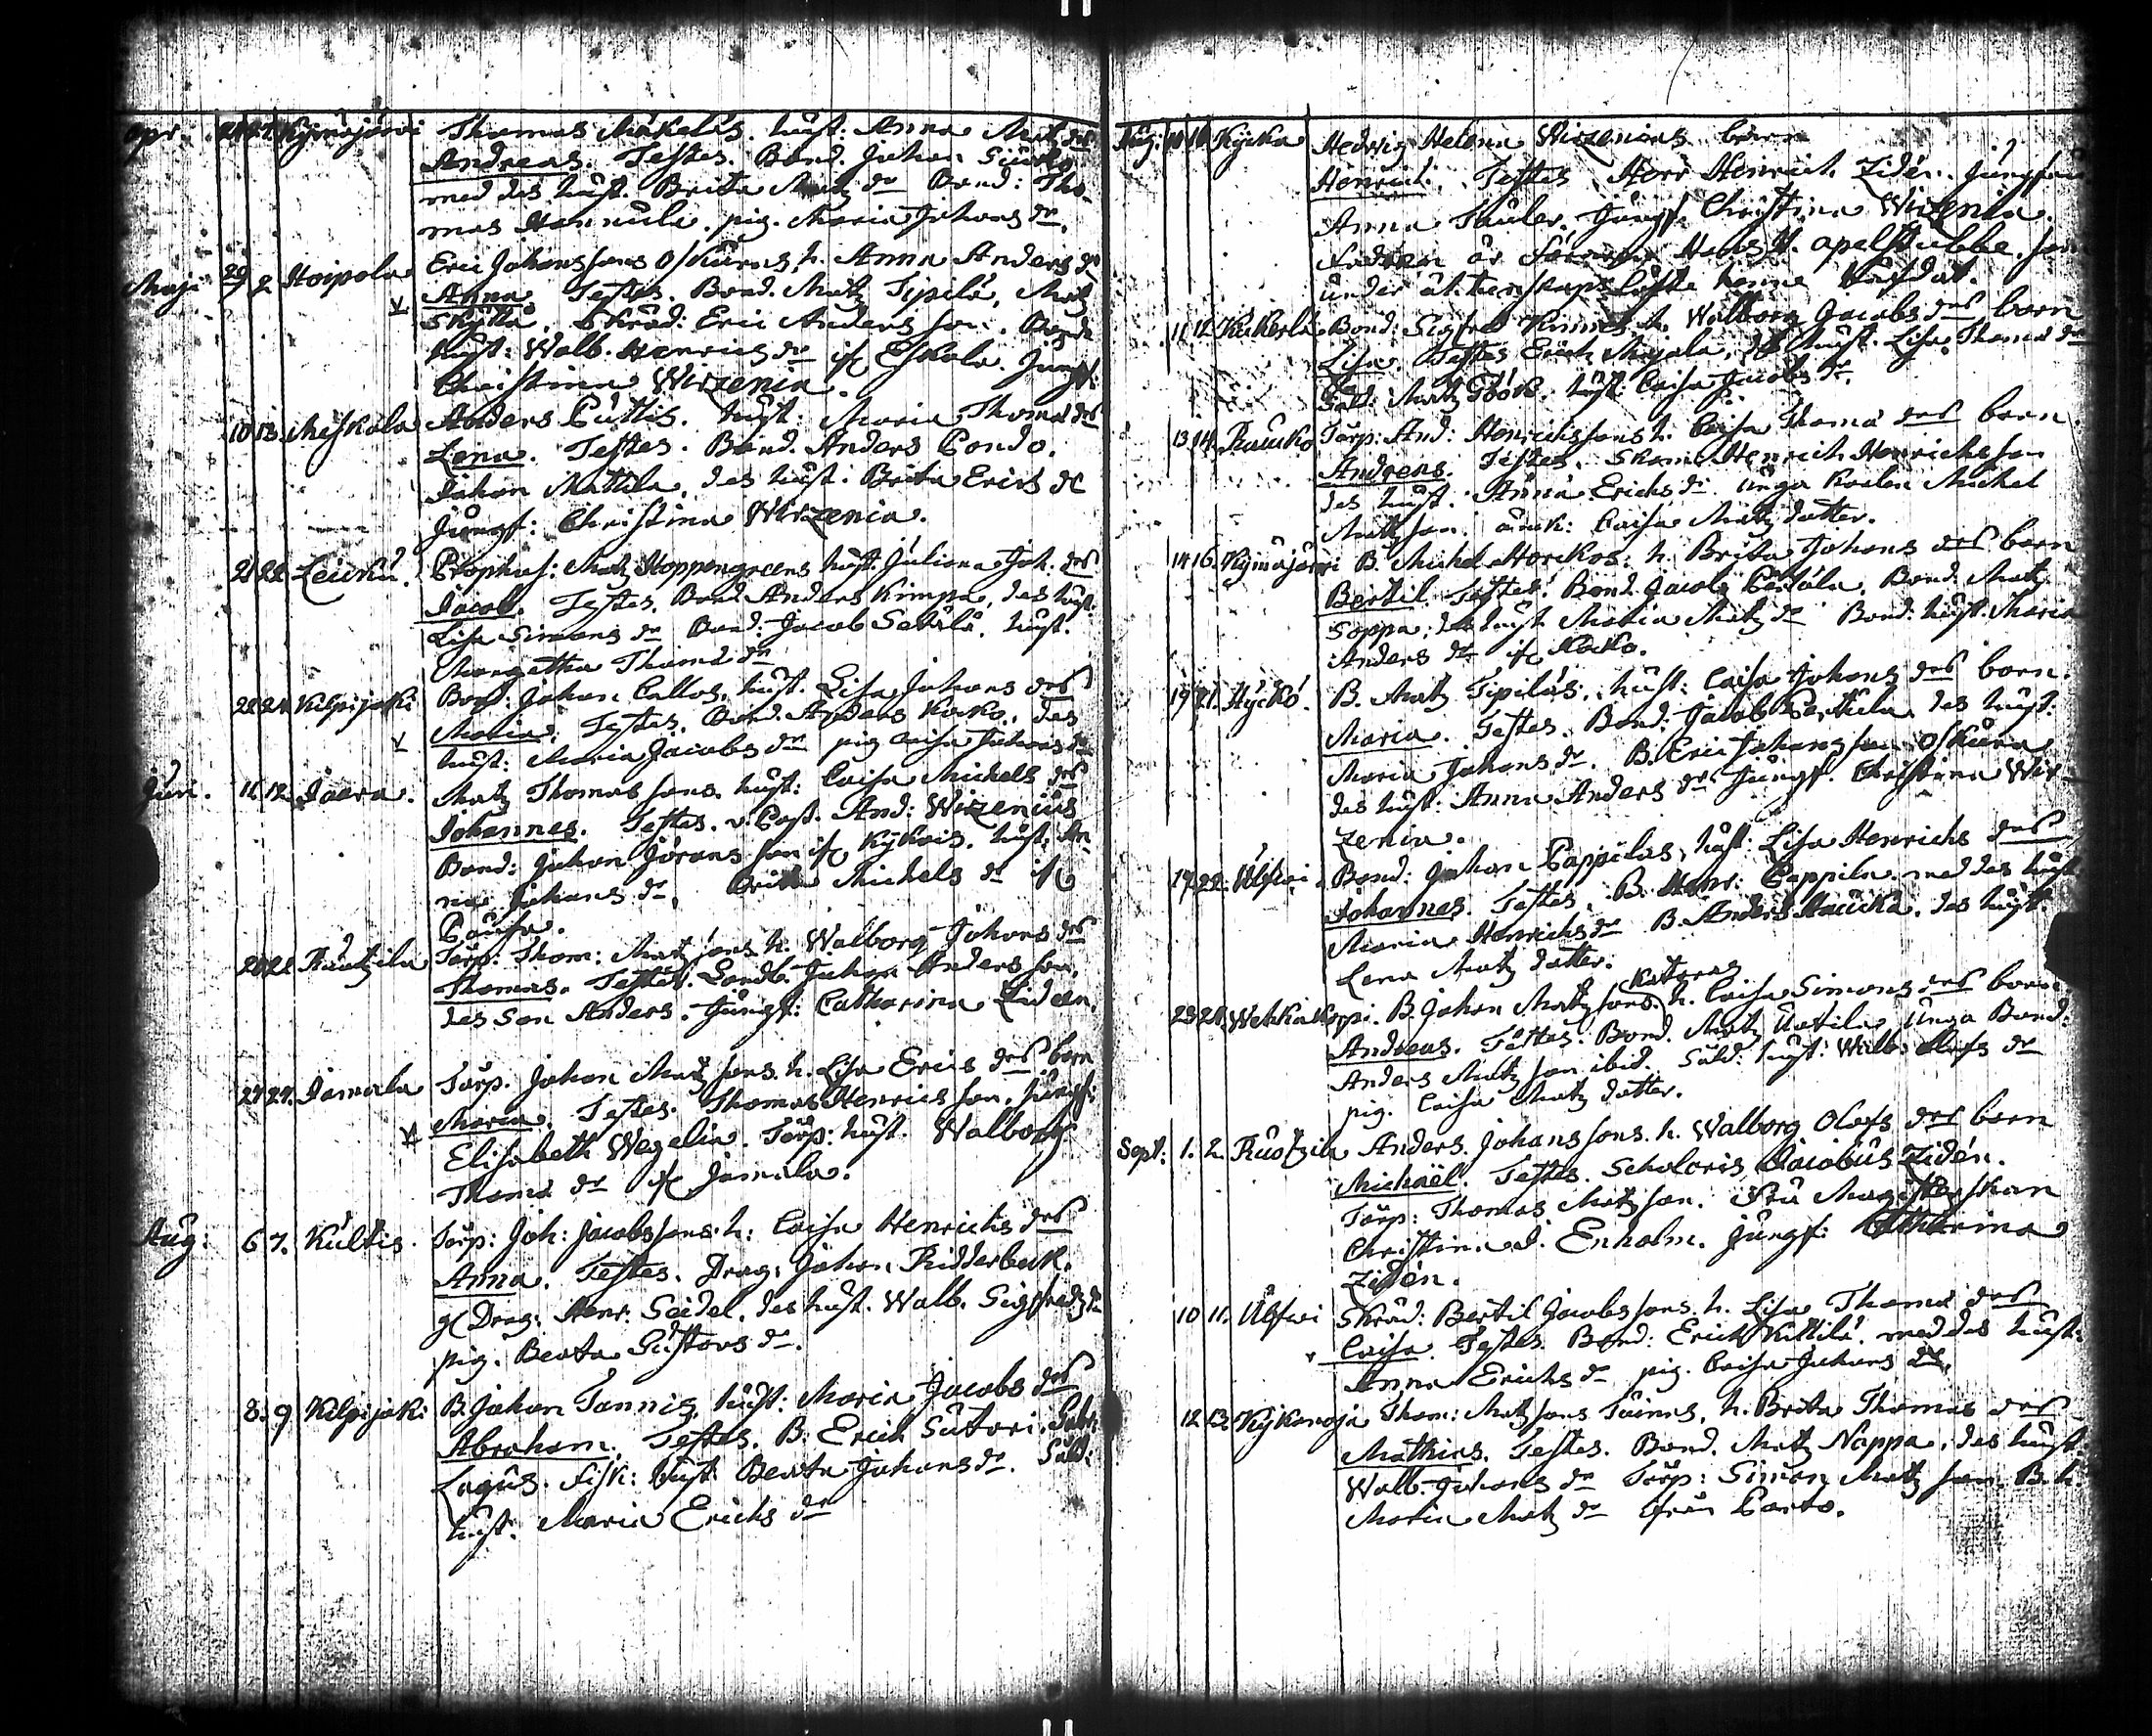 Apr. Kijmäjärvi Thomas Mäkeläs. hust: Anna Matz drs
Andreas. Testes. Bond. Johan
med des hust. Brita Matz dr Bond: Tho-
mas Hannula. pig. Maria Johans dr.
Maji 29 2 Hoipola Eric Johanssons Oskuras, h. Anna Anders dr
Anna. Testes. Bond. Matz Sipilä, Matz
Skyttä. Skräd: Eric Anders son. Bonde
hust: Walb. Henrics dr Eskola. Jungf.
Christina Wirzenia.
10 13. Meskala Anders Puttis. hust: Maria Thomæ drs
Lena. Testes. Bond. Anders Pondo.
Johan Mattila, des hust: Brita Erics dr
Jungf: Christina Wirzenia.
21 22. Leurku. Prophos: Matz Hoppengreens hust. Juliana Joh. drs
Jacob. Testes. Bond. Anders Kimpa, des hust:
Lisa Simons dr Bond: Jacob Setälä. hust.
Margetha Thomæ dr
22 24. Kilpijoki Bond: Johan Callos, hust. Lisa Johans drs
Maria. Testes. Bond. Anders Kocko, des
hust: Maria Jacobs dr pig Caisa Johans dr
Jun. 11 12. Jaara. Matz Thomas sons hust: Caisa Michels drs
Johannes. Testes. v. Past. And: Wirzenius
Bond: Johan Jörans son Kykois. hust: An-
na Johans dr. Brita Michels dr
Pausa.
20 21. Ruutzila Torp: Thom: Matz sons h. Walborg Johans drs
Thomas. Testes. Landb. Johan Anders son,
des son Anders. Jungf: Catharina Ziden.
27 29. Jamala Torp. Johan Matz sons. h. Lisa Erics drs barn
Maria. Testes. Thomas Henrics son. Jungf:
Elisabeth Wegelia. Torp: hust. Walborg
Thomæ dr Jamala.
Aug: 6 7. Kultis. Torp: Joh: Jacobssons h: Caisa Henrichs drs
Anna. Testes. Drag: Johan Ridderbeck.
Drag: Henr: Seidel. des hust. Walb. Sigfredz dr
pig. Beata Gustavs dr.
8. 9 Kilpijoki B. Johan Tannis, hust: Maria Jacobs drs
Abraham. Testes. B. Erich Sutari.
Lagus. Fisk: hust Beata Johans dr. Sold:
hust: Maria Erichs dr
Aug: 10 10 Kycka Hedvig Helena Wirzenias barn
Henrich. Testes Herr Henrich Zidén. Jungfru
Anna Thuler. Jungf. Christina Wirzenia.
Fadren är Apelstubbe. som
under ächtenskaps löfte henne
11 12. Kukerla Bond: Sigfred h. Walborg Jacobs drs barn
Lisa. Testes Erich Majala, des hust. Lisa Thomæ dr
Sold: Matz Töök. hust: Caisa Jacobs dr.
13 14. Raucko Torp: And: Henrichssons h. Caisa Thomæ drs barn.
Andreas. Testes. Skom. Henrich Henrichsson
des hust: Anna Erichs dr. unga Karlen Michel
Matzson. änck: Caisa Matz dotter.
14 16. Kijmäjärvi B. Michel Horckos: h. Brita Johans drs barn
Bertil. Testes: Bond. Jacob Pertula. Bond. Matz
Soppa: des hust Maria Matz dr Bond: hust. Maria
Anders dr Kocko.
19 21. Hyckö. B. Matz Sipiläs, hust: Caisa Johans drs barn.
Maria. Testes. Bond: Jacob Pertula, des hust:
Maria Johans dr. B. Eric Johansson Oskura
des hust: Anna Anders dr. Jungf. Christina Wir-
zenia.
19 22. Ulfwi Bond: Johan Pappilas, hust: Lisa Henrichs drs
Johannes. Testes. B. Henr: Pappila med des hust
Maria Henrichs dr B. Anders Haucka. des hust:
Lena Matz dotter.
23 24. Wehkakoppi. B. Johan Matz sons Kataras h. Caisa Simons drs barn
Andreas. Testes. Bond. Matz Uotila unga Bond:
Anders Matz son ibid. Sold: hust: Walb: Olofs dr
pig. Caisa Matz dotter.
Sept: 1. 2. Ruotzila Anders Johanssons. h. Walborg Olofs drs barn
Michaël. Testes. Scholaris Jacobus Zidén.
Torp: Thomas Matzson. Fru Magisterskan
Christina d. Enholm. Jungf: Catharina
Zidén.
10 11. Ulfwi Skräd: Bertil Jacobssons. h. Lisa Thomæ drs
Caisa. Testes. Bond: Erich Kittilä. med des hust:
Anna Erichs dr pig. Caisa Johans dr.
12 13. Kykänoja Thom: Matz sons Toinas, h. Brita Thomas drs
Mathias. Testes. Bond. Matz Nappa, des hust
Walb. Johans dr Torp: Simon Matz son. B. h.
Maria Matz dr från Parto.